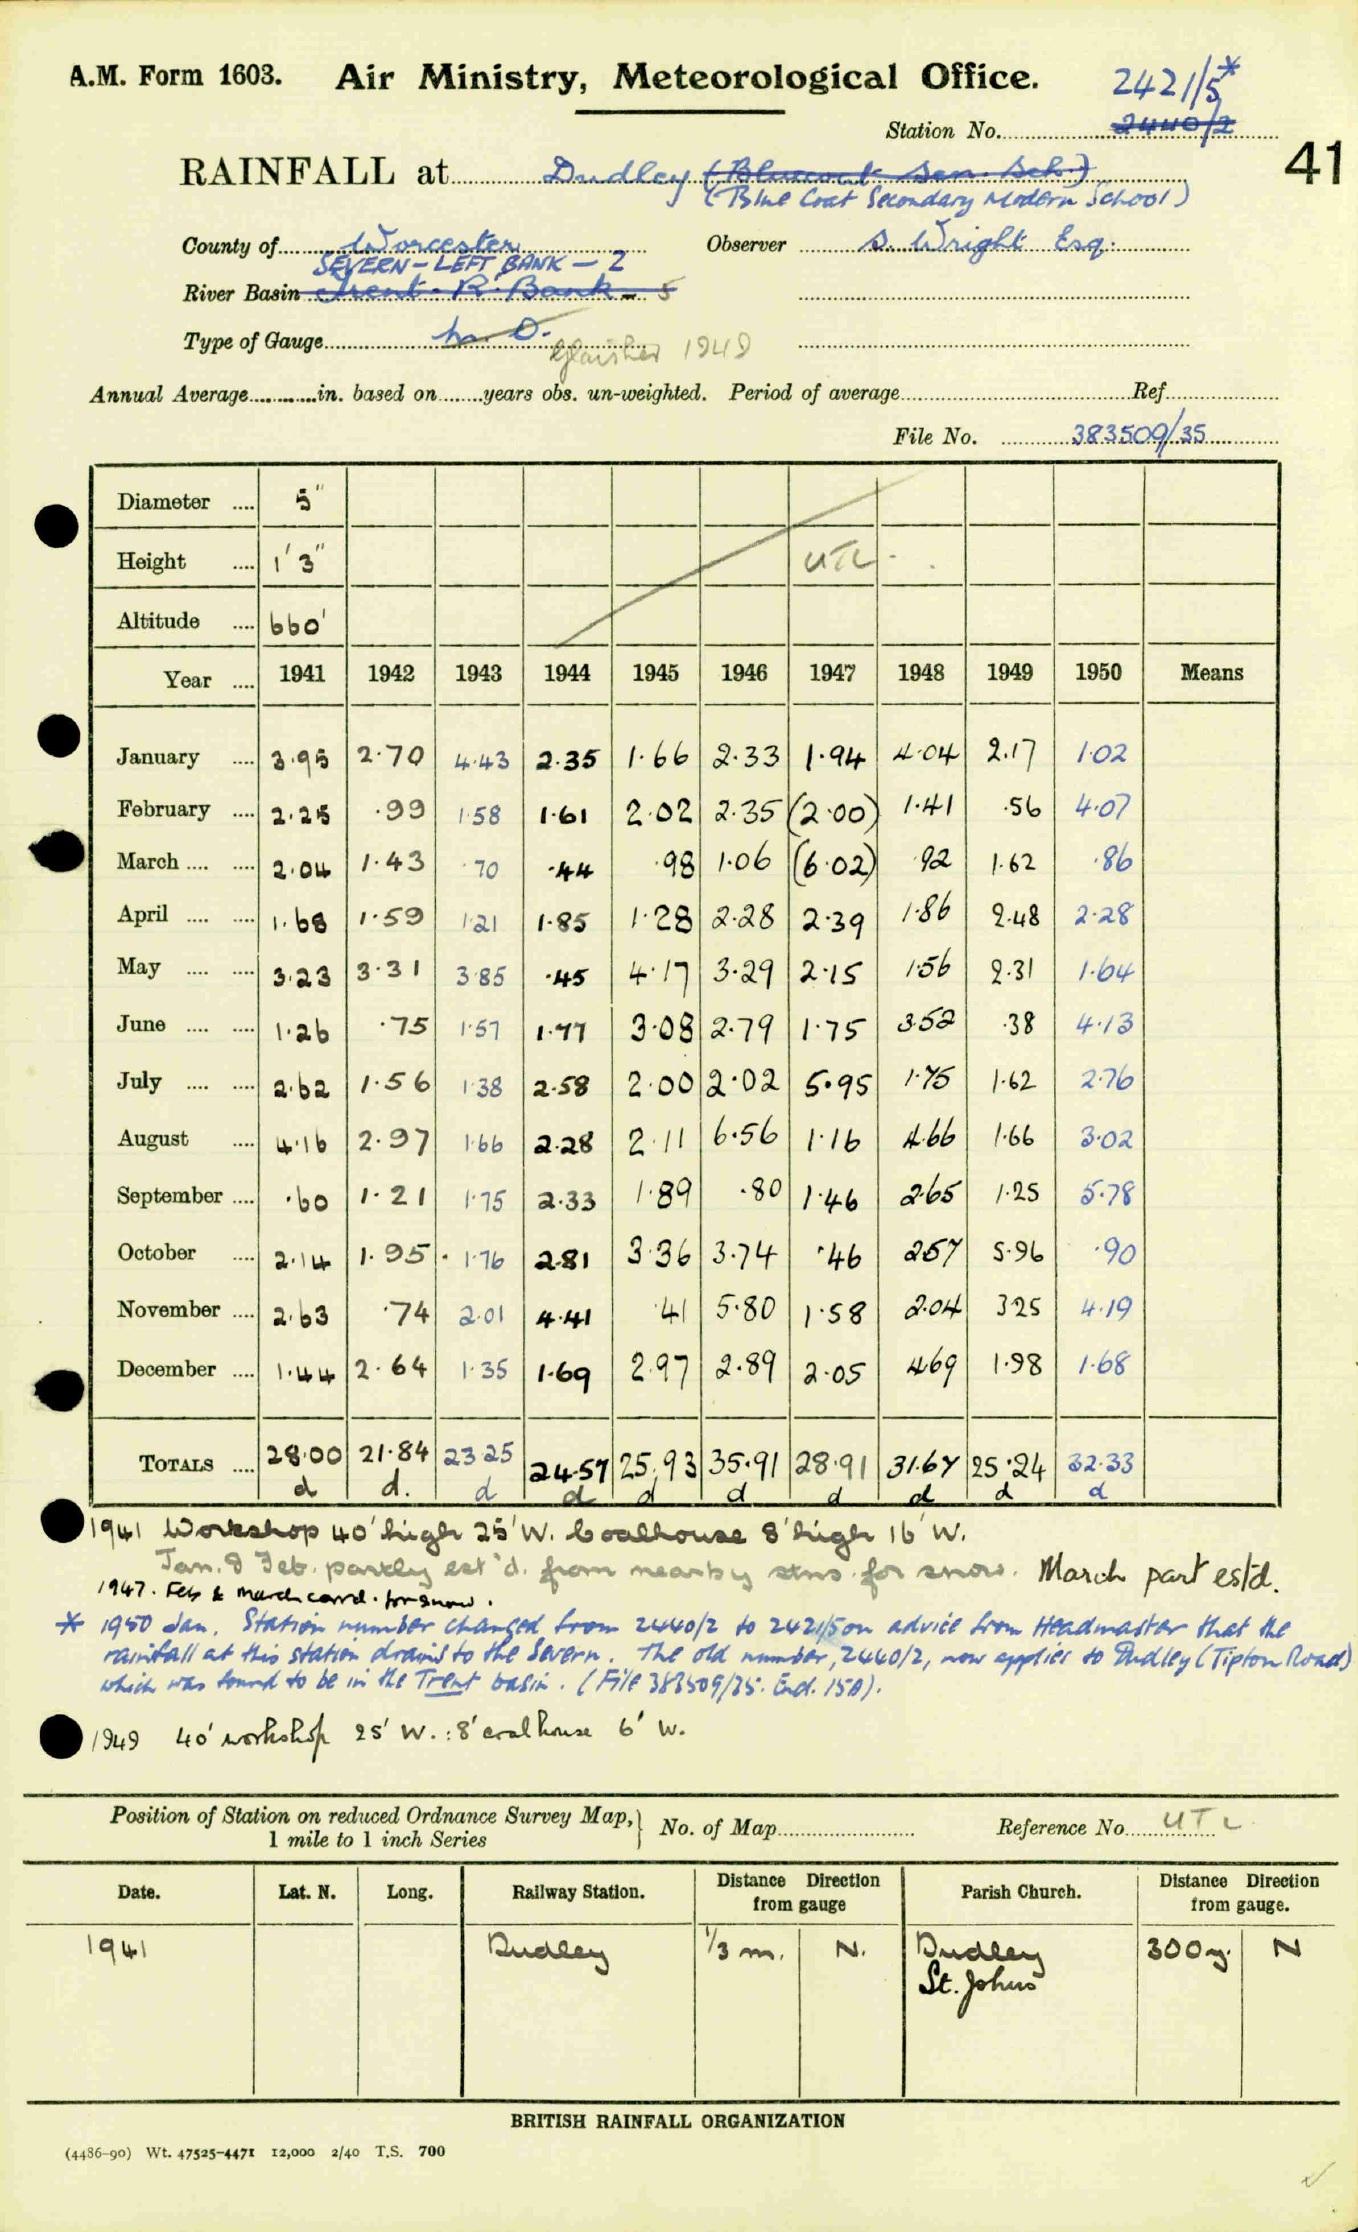 A.M. Form 1603. Air Ministry, Meteorological Office.
2421/5*
Station No. 2440/2
41
RAINFALL at Dudley (Bluecoat Sen. Sch.)
(Blue Coat Secondary Modern School)
County of Worcester Observer S. Wright Esq.
SEVERN - LEFT BANK - 2
River Basin Trent - R. Bank - 5
Type of Gauge M.O.
Glaisher 1949
Annual Average in. based on years obs. un-weighted. Period of average Ref.
File No. 383509/35
Diameter 5"
Height 1'3" UTL.
Altitude 660'
Year 1941 1942 1943 1944 1945 1946 1947 1948 1949 1950 Means
January 3.95 2.70 4.43 2.35 1.66 2.33 1.94 4.04 2.17 1.02
February 2.25 .99 1.58 1.61 2.02 2.35 (2.00) 1.41 .56 4.07
March 2.04 1.43 .70 .44 .98 1.06 (6.02) .92 1.62 .86
April 1.68 1.59 1.21 1.85 1.28 2.28 2.39 1.86 2.48 2.28
May 3.23 3.31 3.85 .45 4.17 3.29 2.15 1.56 2.31 1.64
June 1.26 .75 1.57 1.77 3.08 2.79 1.75 3.52 .38 4.13
July 2.62 1.56 1.38 2.58 2.00 2.02 5.95 1.75 1.62 2.76
August 4.16 2.97 1.66 2.28 2.11 6.56 1.16 4.66 1.66 3.02
September .60 1.21 1.75 2.33 1.89 .80 1.46 2.65 1.25 5.78
October 2.14 1.95 1.76 2.81 3.36 3.74 .46 2.57 5.96 .90
November 2.63 .74 2.01 4.41 .41 5.80 1.58 2.04 3.25 4.19
December 1.44 2.64 1.35 1.69 2.97 2.89 2.05 4.69 1.98 1.68
TOTALS 28.00 21.84 23.25 24.57 25.93 35.91 28.91 31.67 25.24 32.33
d d. d d d d d d d d
1941 Workshop 40' high 25' W. Coalhouse 8' high 16' W.
Jan. & Feb. partly est'd. from nearby stns. for snow. March part est'd.
1947. Feb & March corrd. for snow.
* 1950 Jan. Station number changed from 2440/2 to 2421/5 on advice from Headmaster that the
rainfall at this station drains to the Severn. The old number, 2440/2, now applies to Dudley (Tipton Road)
which was found to be in the Trent basin. (File 383509/35. Encl. 15A).
1949 40' workshop 25' W. : 8' coalhouse 6' W.
Position of Station on reduced Ordnance Survey Map,
1 mile to 1 inch Series
No. of Map Reference No. UTL
Date. Lat. N. Long. Railway Station. Distance from gauge Direction Parish Church. Distance from gauge. Direction
1941 Dudley 1/3 m. N. Dudley 300y. N
St. Johns
BRITISH RAINFALL ORGANIZATION
(4486-90) Wt. 47525-4471 12,000 2/40 T.S. 700